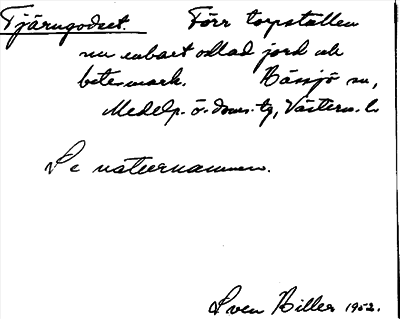 Tjärugodset. Förr torpställen
nu enbart odlad jord och
betesmark. Hässjö sn,
Medelp. ö. doms.-tg, Västern. l.
Se naturnamnen.
Sven Hiller 1952.